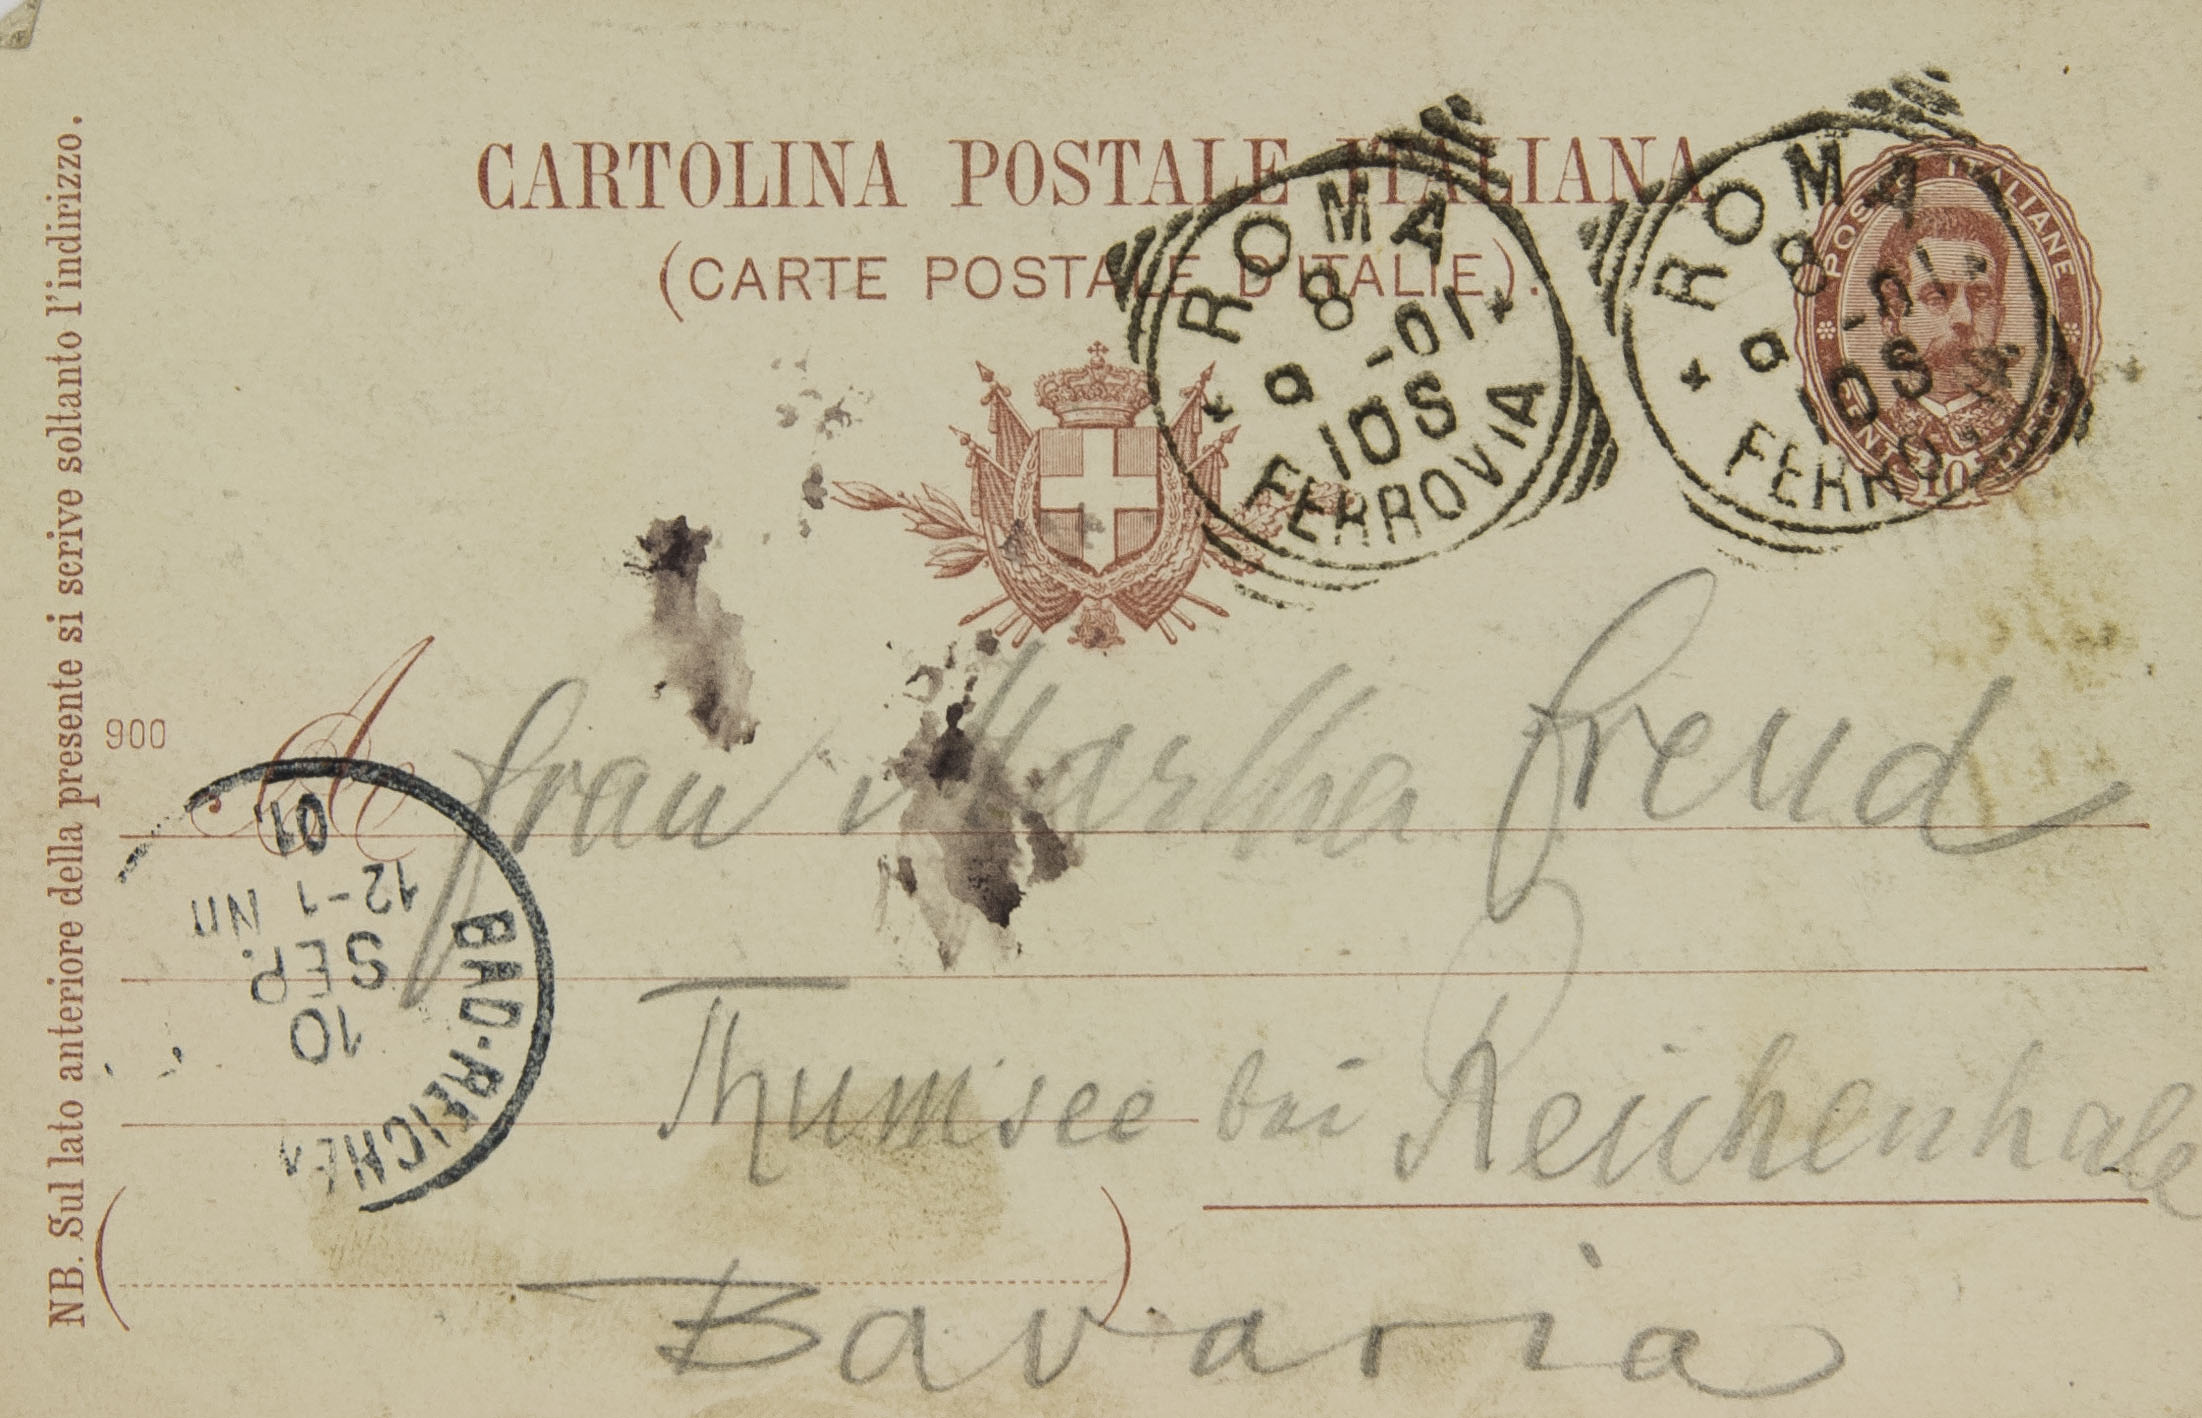 CARTOLINA POSTALE ITALIANA
(CARTE POSTALE D'ITALIE).
ROMA
8
9 -01
10S
FERROVIA
ROMA
8
9 -01
10S
FERRO
POSTE ITALIANE
10
NB. Sul lato anteriore della presente si scrive soltanto l'indirizzo.
900
A
Frau Martha Freud
Thumsee bei Reichenhall
Bavaria
BAD-REICHEN
10
SEP.
12-1 Nn
01